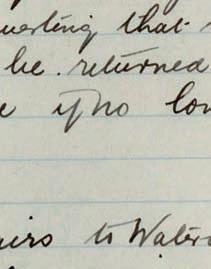 uesting that
be returned
e if no lon
airs to Water